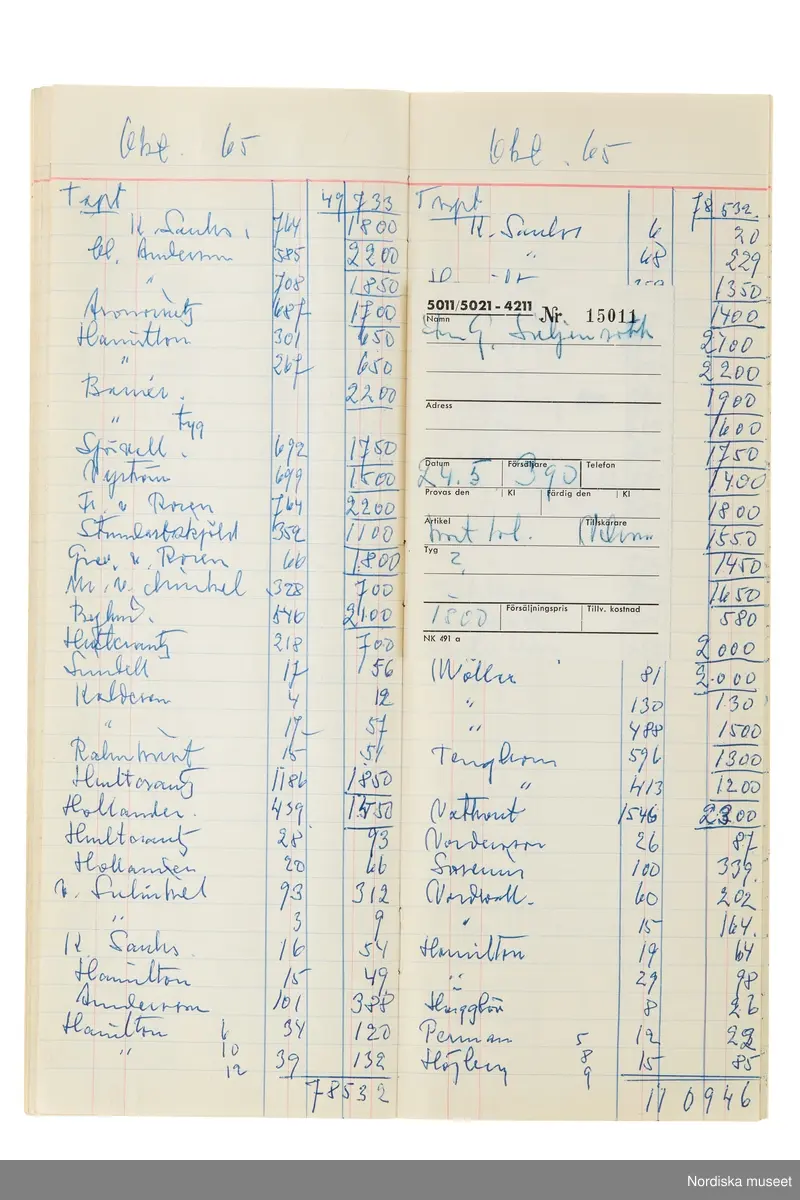 Okt. 65
Trpt 49 733
K. Sachs. 764 1800
Cl. Anderson 585 2200
" 708 1850
Aronowitz 687 1700
Hamilton 301 650
" 267 650
Barner. 2200
" tyg
Sjövall. 692 1750
Nyström 699 1500
Fr. v. Rosen 764 2200
352 1100
Grev. v. Rosen 66 1800
328 700
546 2100
Hultcrantz 218 700
Sundell 17 56
Kalderon 4 12
" 17 57
15 51
Hultcrantz 1186 1850
Hollander. 439 1550
Hultcrantz 28 93
Hollander 20 66
v. Schinkel 93 312
" 3 9
K. Sachs. 16 54
Hamilton 15 49
Anderson 101 388
Hamilton 6 34 120
" 10
12 39 132
78532
Okt. 65
Trpt 78 532
K. Sachs 6 20
" 68 229
1350
1400
2100
2200
1900
1600
1750
1400
1800
1550
1450
1650
580
2000
5011/5021 - 4211 Nr. 15011
Namn
G. Liljenroth
Adress
Datum Försäljare Telefon
24.5 390
Provas den Kl Färdig den Kl
Artikel Tillskärare
Tyg
2
1800 Försäljningspris Tillv. kostnad
NK 491 a
Möller 81 2000
" 130 130
" 488 1500
Tengbom 596 1300
" 413 1200
1546 2300
Nordenson 26 87
100 339.
Nordwall. 60 202
" 15 164.
Hamilton 19 64
" 29 98
Hägglöf 8 26
Perman 5 12 22
Höjberg 8 15 85
9
110946
Nordiska museet